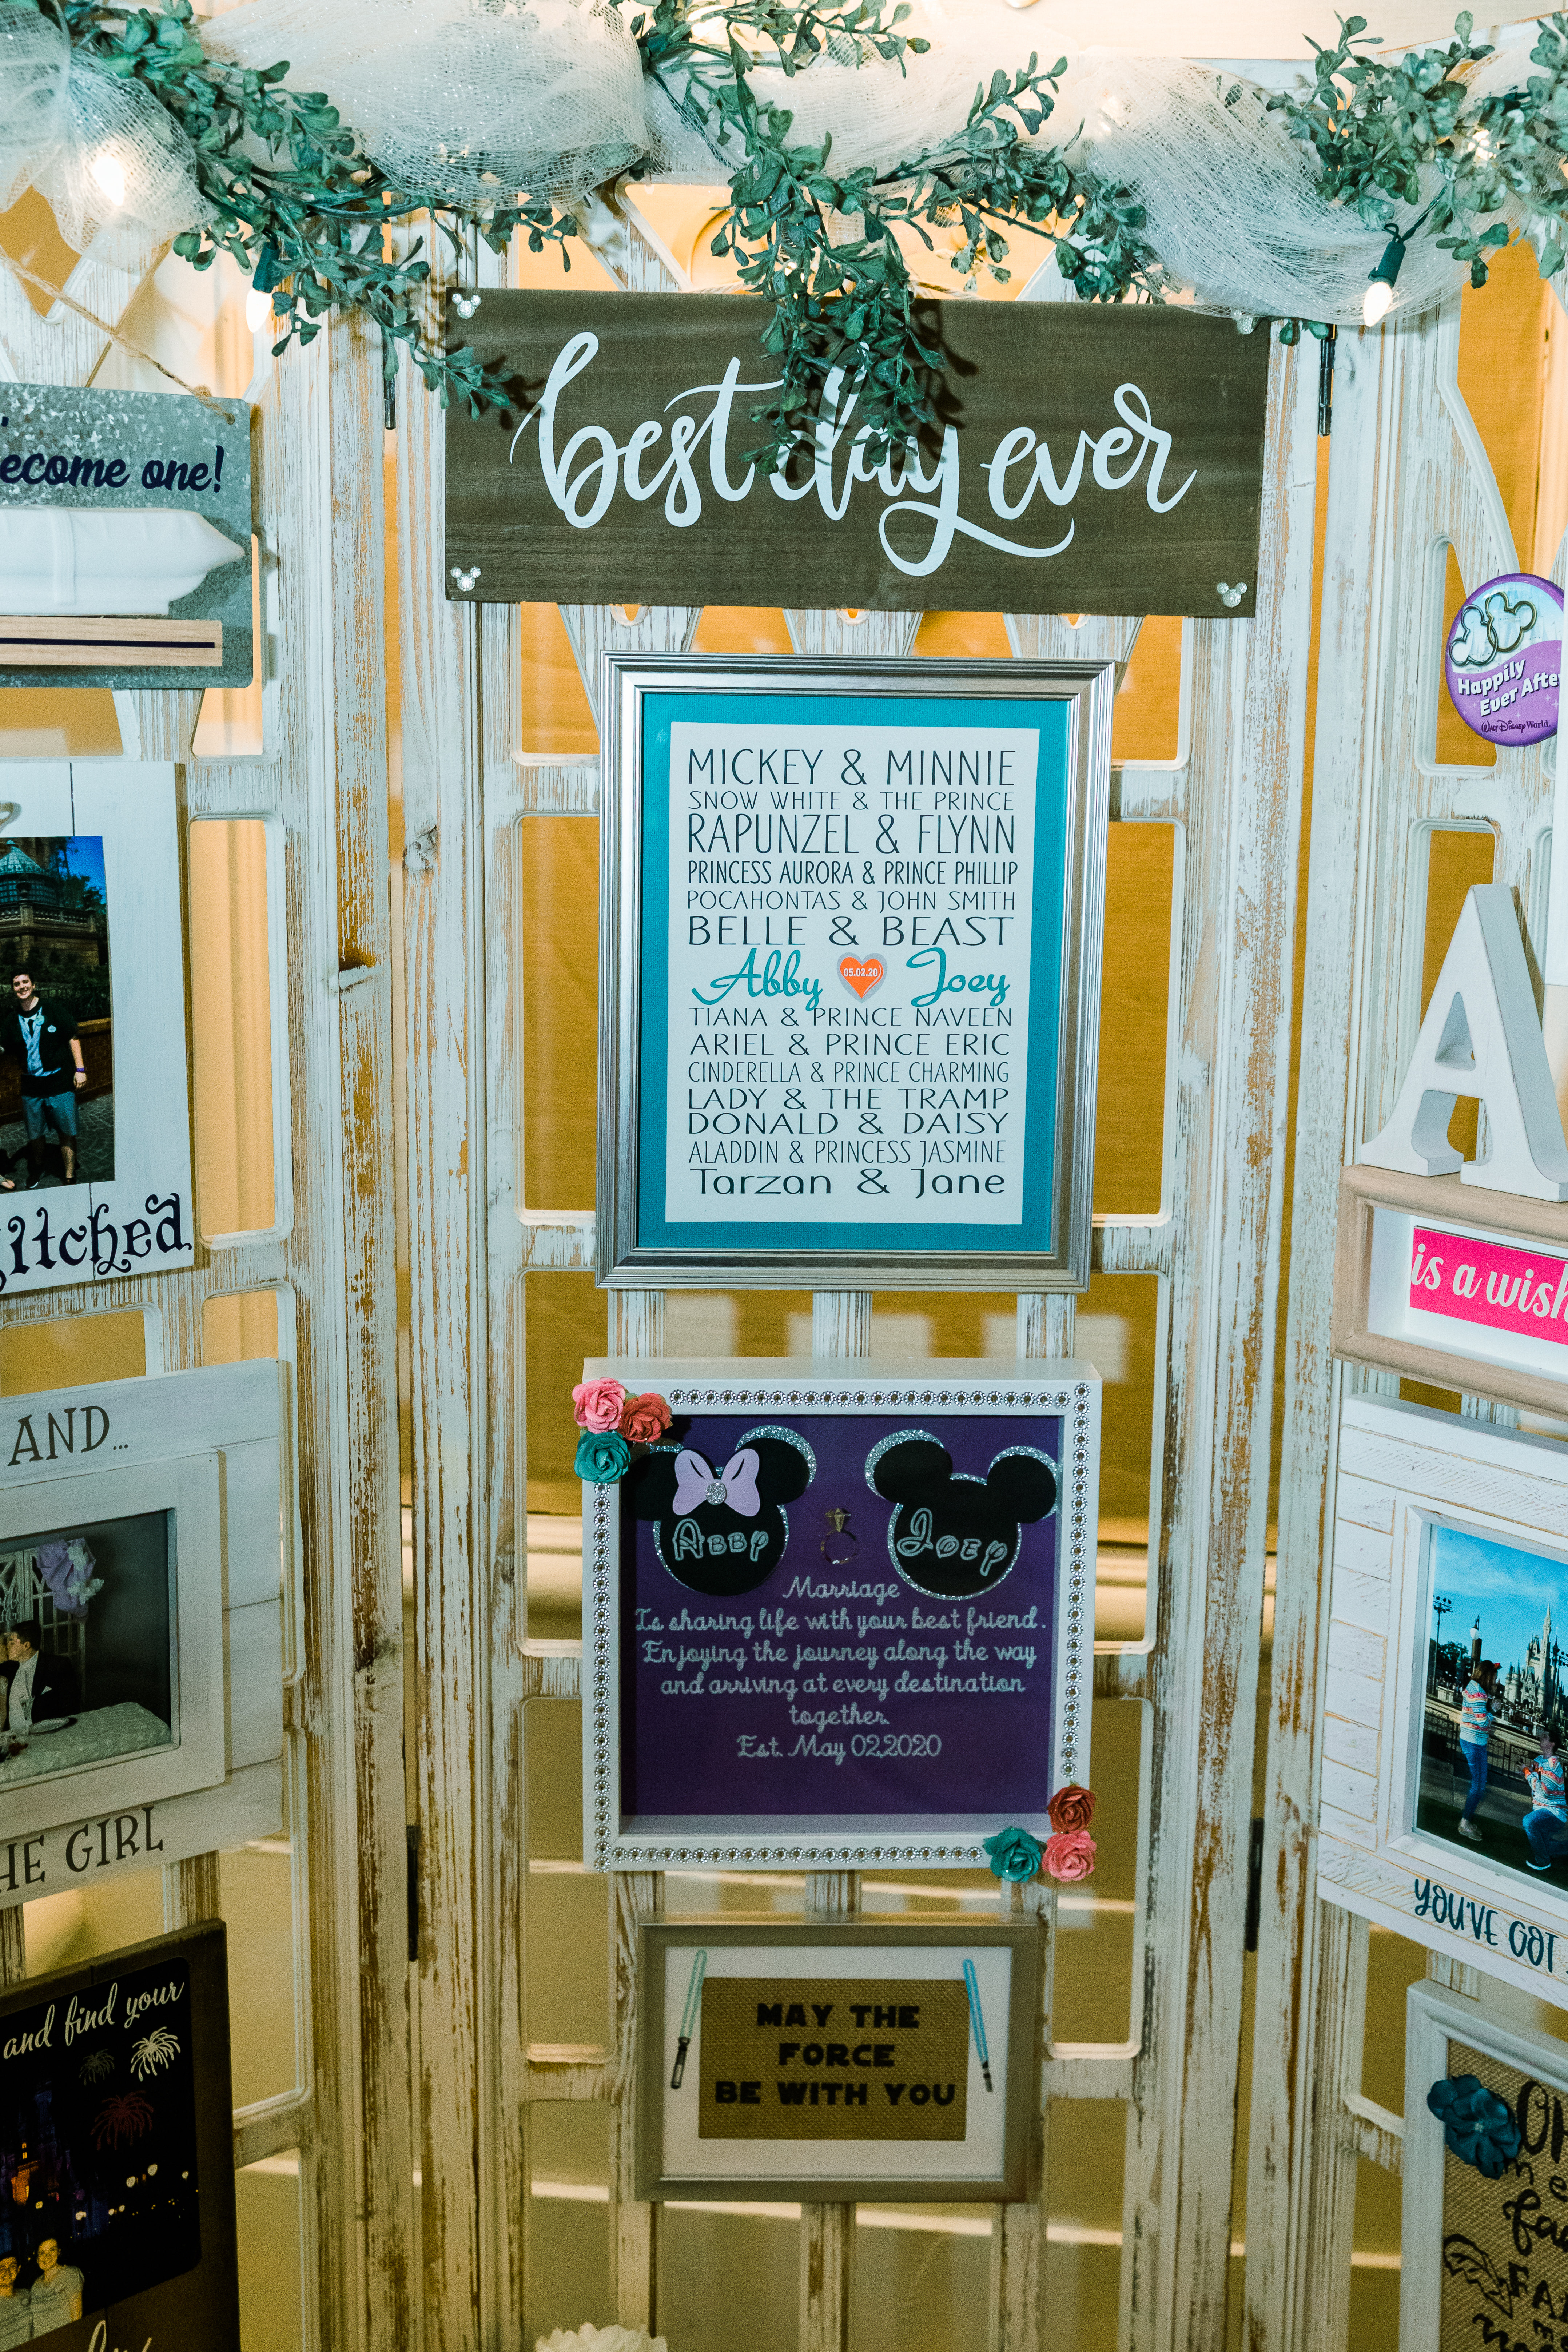 best day ever
MICKEY & MINNIE
SNOW WHITE & THE PRINCE
RAPUNZEL & FLYNN
PRINCESS AURORA & PRINCE PHILLIP
POCAHONTAS & JOHN SMITH
BELLE & BEAST
Abby 05.02.20 Joey
TIANA & PRINCE NAVEEN
ARIEL & PRINCE ERIC
CINDERELLA & PRINCE CHARMING
LADY & THE TRAMP
DONALD & DAISY
ALADDIN & PRINCESS JASMINE
Tarzan & Jane
Abby Joey
Marriage
Is sharing life with your best friend.
Enjoying the journey along the way
and arriving at every destination
together.
Est. May 02,2020
MAY THE
FORCE
BE WITH YOU
ecome one!
itched
AND...
HE GIRL
and find your
Happily
Ever Afte
Walt Disney World.
A
is a wish
YOU'VE GOT